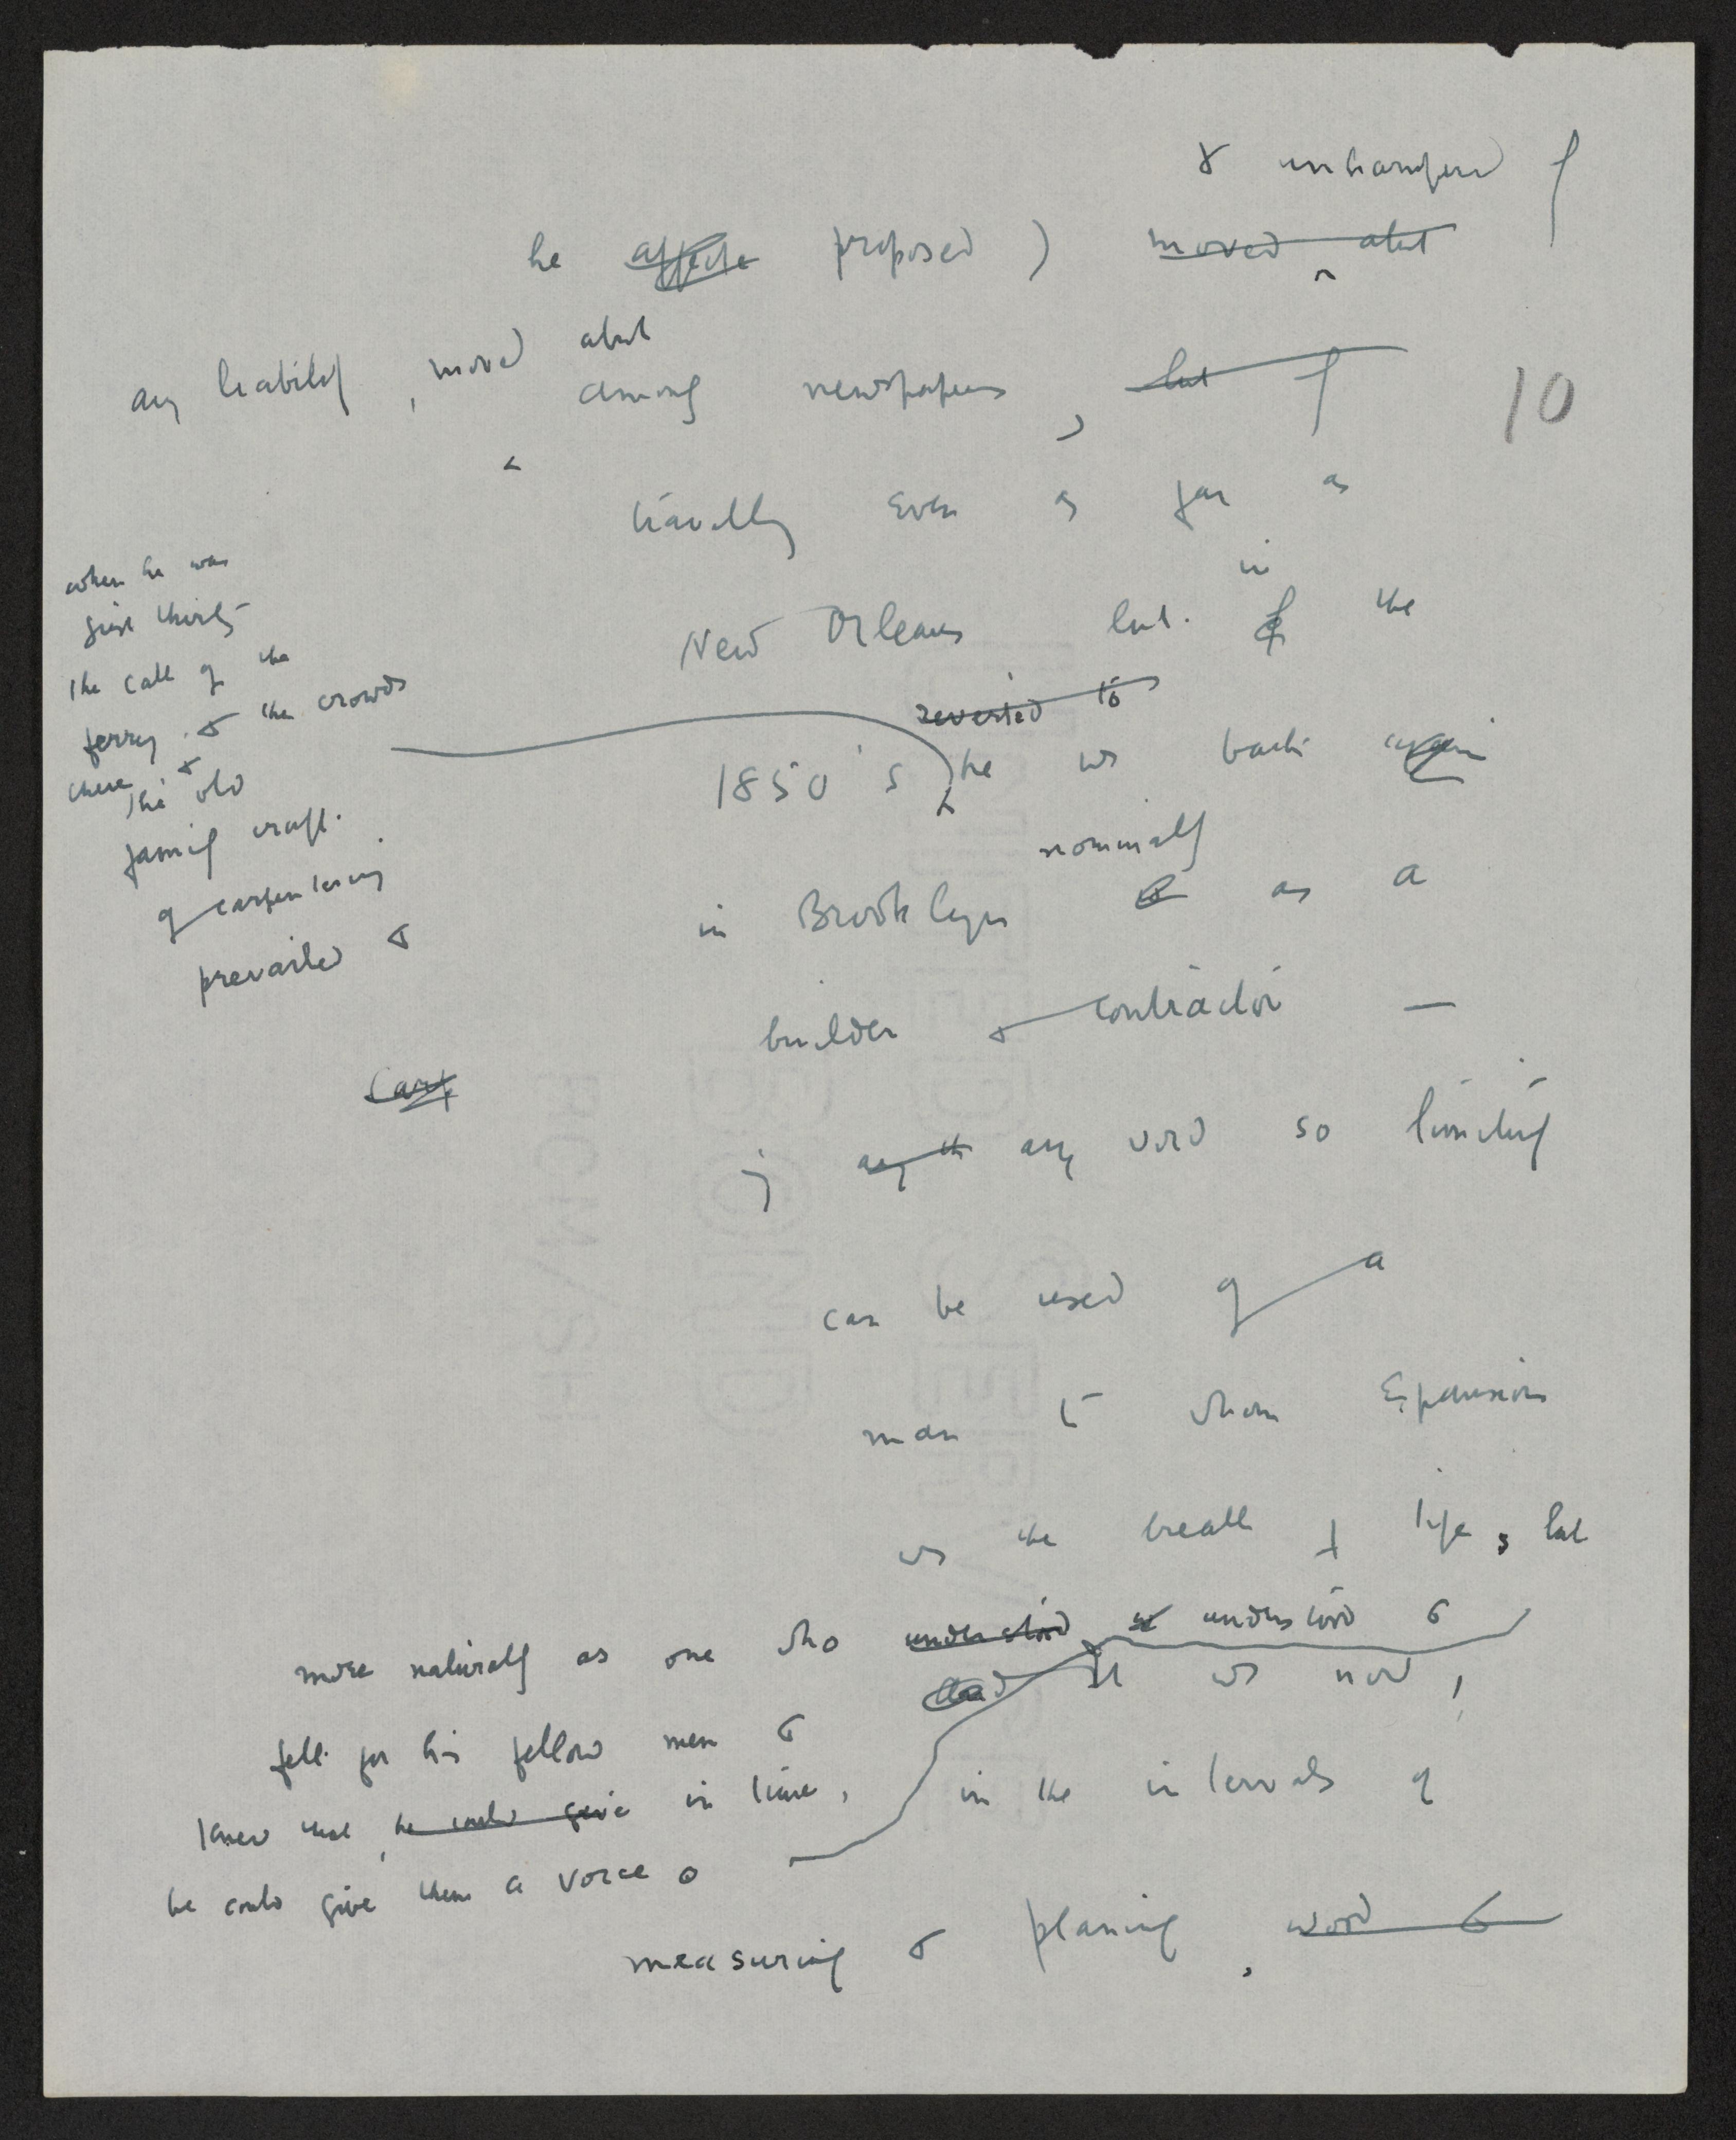 & unhampered by
he proposed ) moved about
any liability, moved about
among newspapers, but
10
travelling even as far as
New Orleans but in the
when he was
just thirty
the call of the
ferry & the crowds
there & the old
family craft
of carpentering
prevailed &
reverted to
1850's he was back again
nominally
in Brooklyn as a
builder & contractor —
Carp
if any th any word so limiting
can be used of a
man to whom Expansion
was the breath of life, but
more naturally as one who understood understood &
felt for his fellow men &
knew that, he could give in time,
he could give them a voice.
It was now,
in the intervals of
measuring & planing, wood &